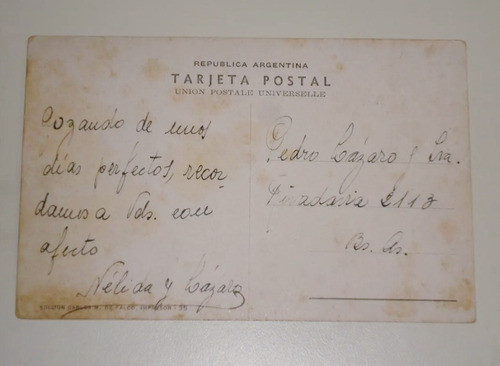 REPUBLICA ARGENTINA
TARJETA POSTAL
UNION POSTALE UNIVERSELLE
Gozando de unos
días perfectos, recor-
damos a Vds. con
afecto
Nélida y Lázaro
Pedro Lázaro y Sra.
2113
Bs. As.